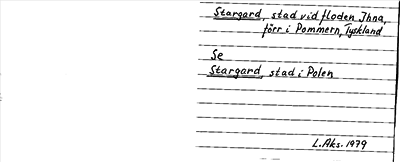 Stargard, stad vid floden Ihna,
förr i Pommern, Tyskland
Se
Stargard, stad i Polen
L. Aks. 1979